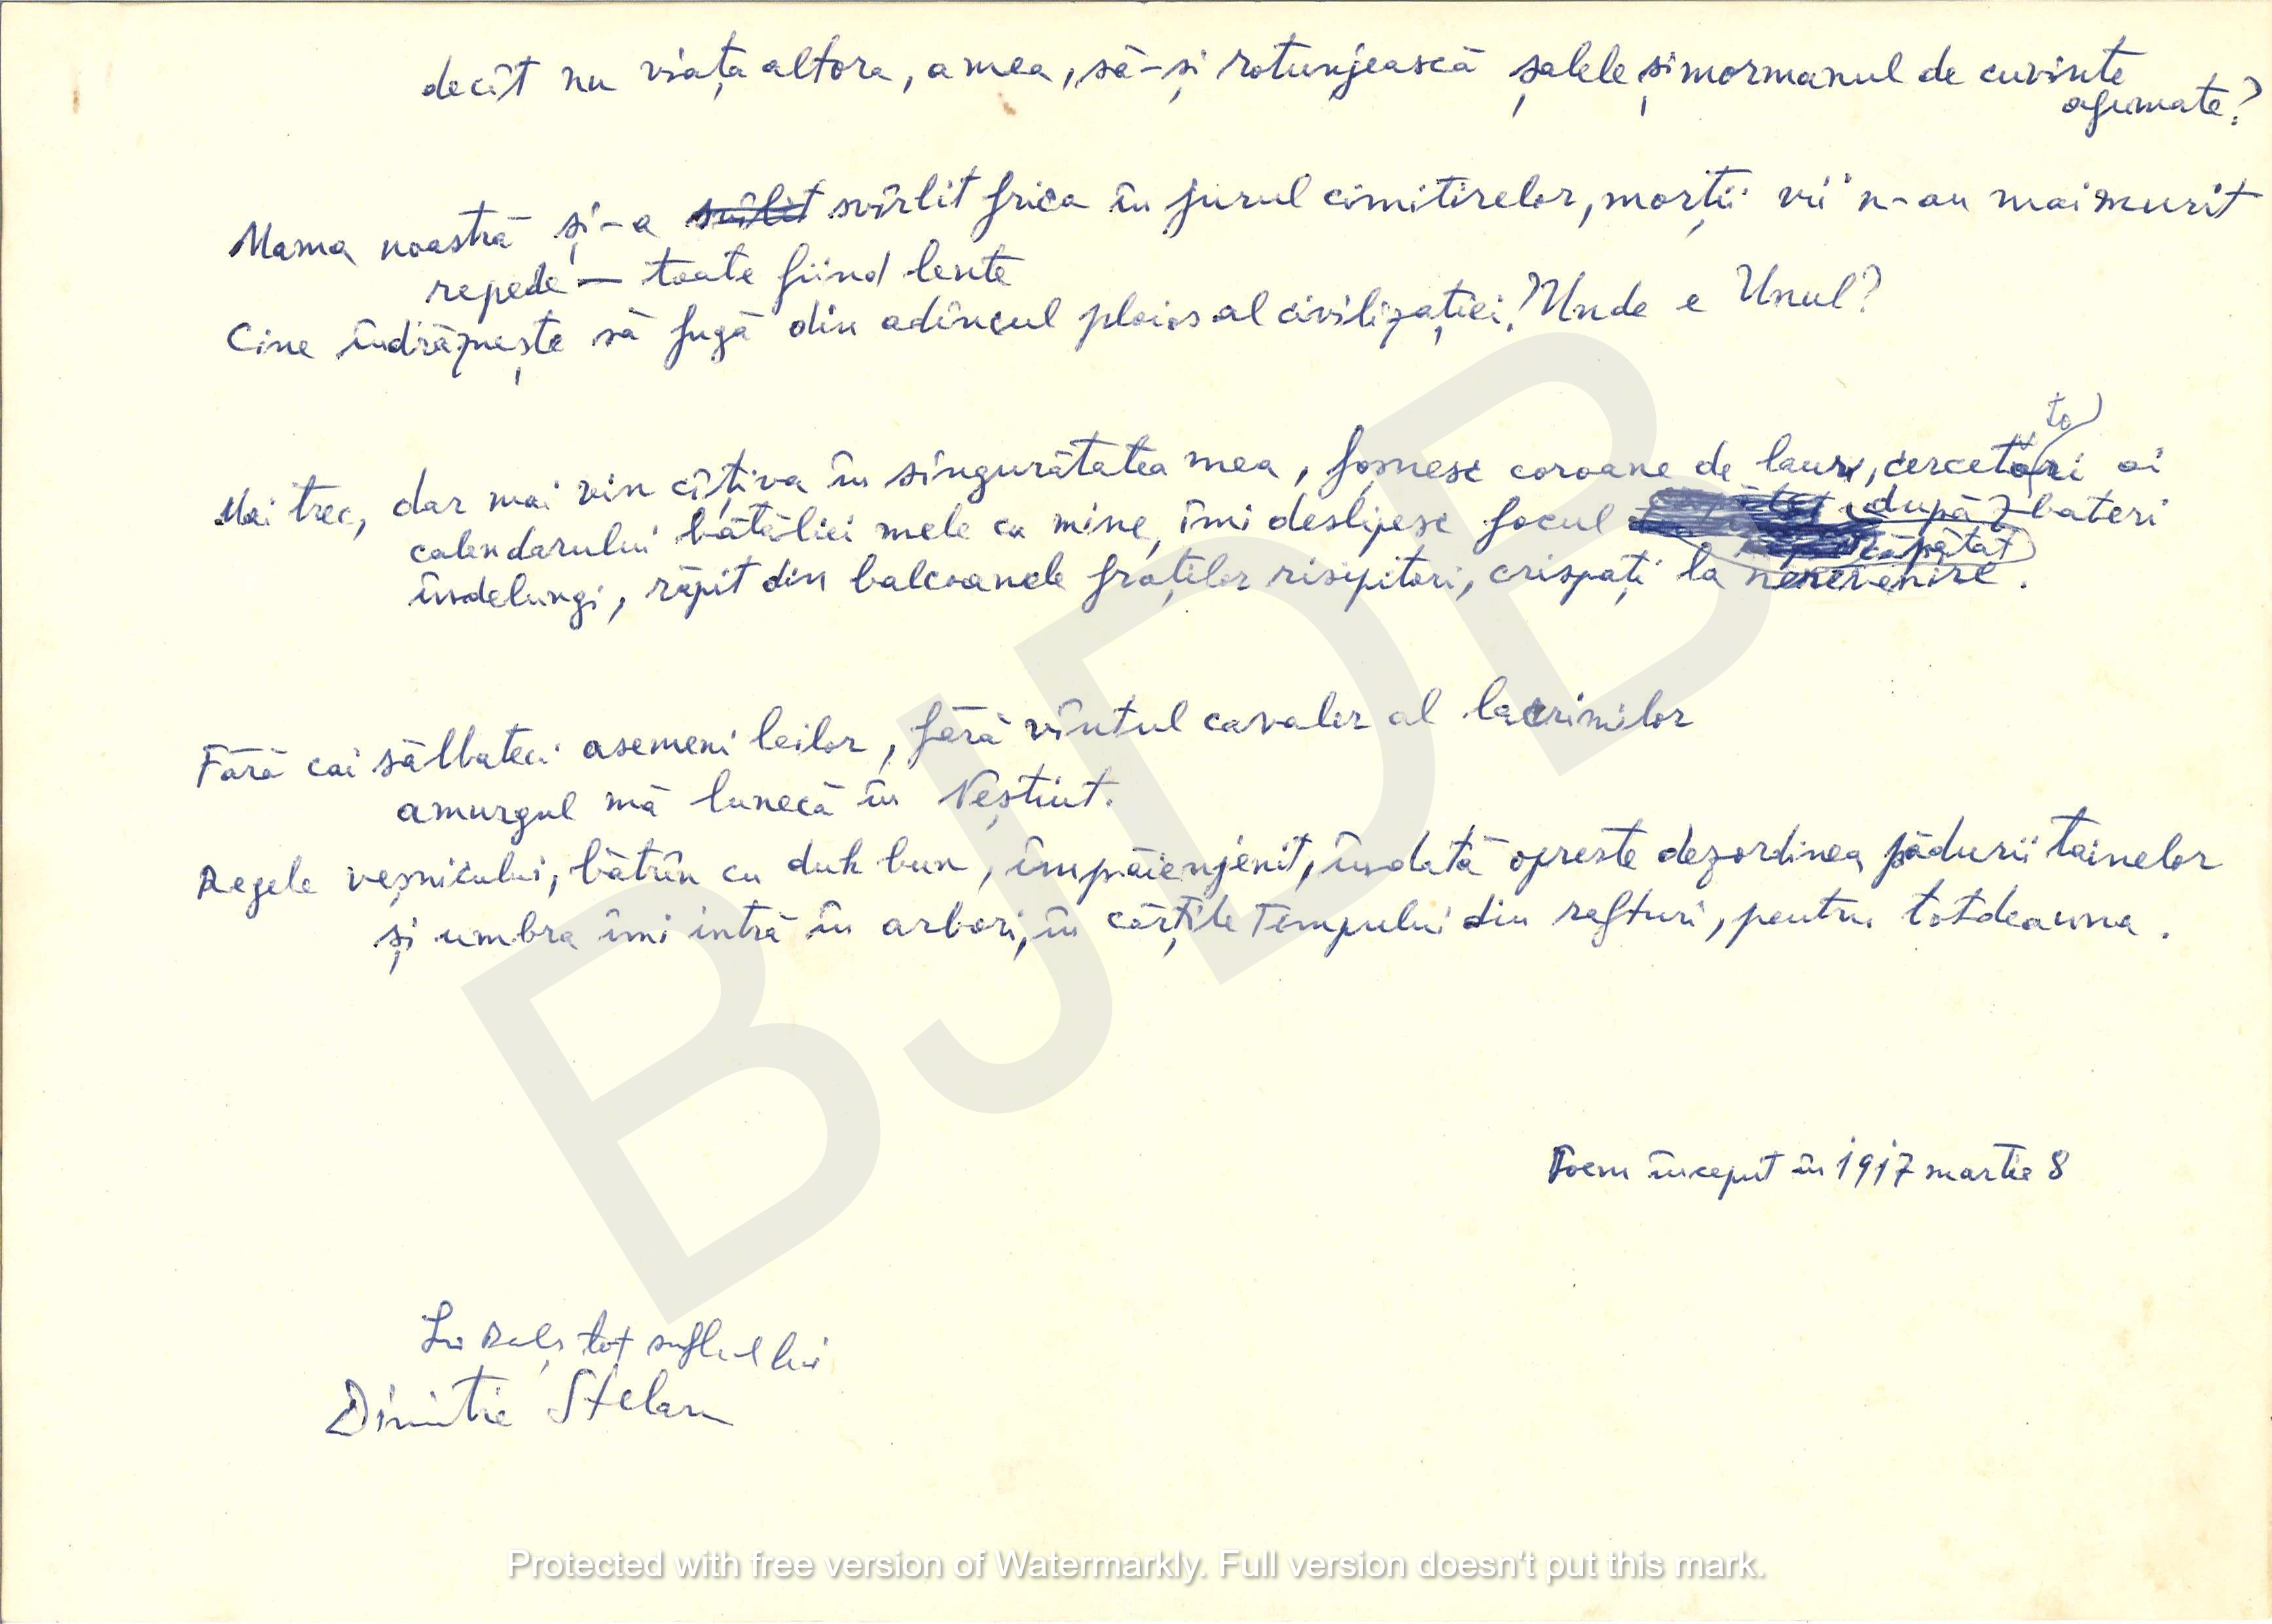 decît nu viața altora, a mea, să-și rotunjească șalele și mormanul de cuvinte
afumate?
Mama noastră și-a svîrlit frica în jurul cimitirelor, morții vii n-au mai murit
repede — toate fiind lente
Cine îndrăznește să fugă din adîncul ploios al civilizației? Unde e Unul?
Mai trec, dar mai vin cîțiva în singurătatea mea, foșnesc coroane de lauri, cercetători ai
calendarului bătăliei mele cu mine, îmi deslipesc focul căpătat după bateri
îndelungi, răpit din balcoanele fraților risipitori, crispați la nerevenire.
Fără cai sălbateci asemeni leilor, fără vîntul cavaler al lacrimilor
amurgul mă lunecă în Neștiut.
Regele veșnicului, bătrîn cu duh bun, împăienjenit, îndată oprește dezordinea pădurii tainelor
și umbra îmi intră în arbori, în cărțile Timpului din rafturi, pentru totdeauna.
Poem început în 1917 martie 8
Lui tot sufletul lui
Dimitrie Stelaru
BJDB
Protected with free version of Watermarkly. Full version doesn't put this mark.